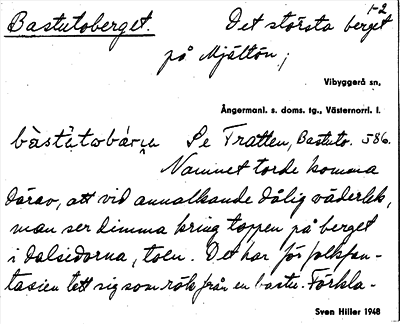 1-2
Bastutoberget. Det största berget
på Mjältön;
Vibyggerå sn,
Ångermanl. s. doms. tg., Västernorrl. l.
Se Tratten, Bastuto. 586.
Namnet torde komma
därav, att vid annalkande dålig väderlek,
man ser dimma kring toppen på berget
i dalsidorna, toen. Det har för folkfan-
tasien tett sig som rök från en bastu. Förkla-
Sven Hiller 1948